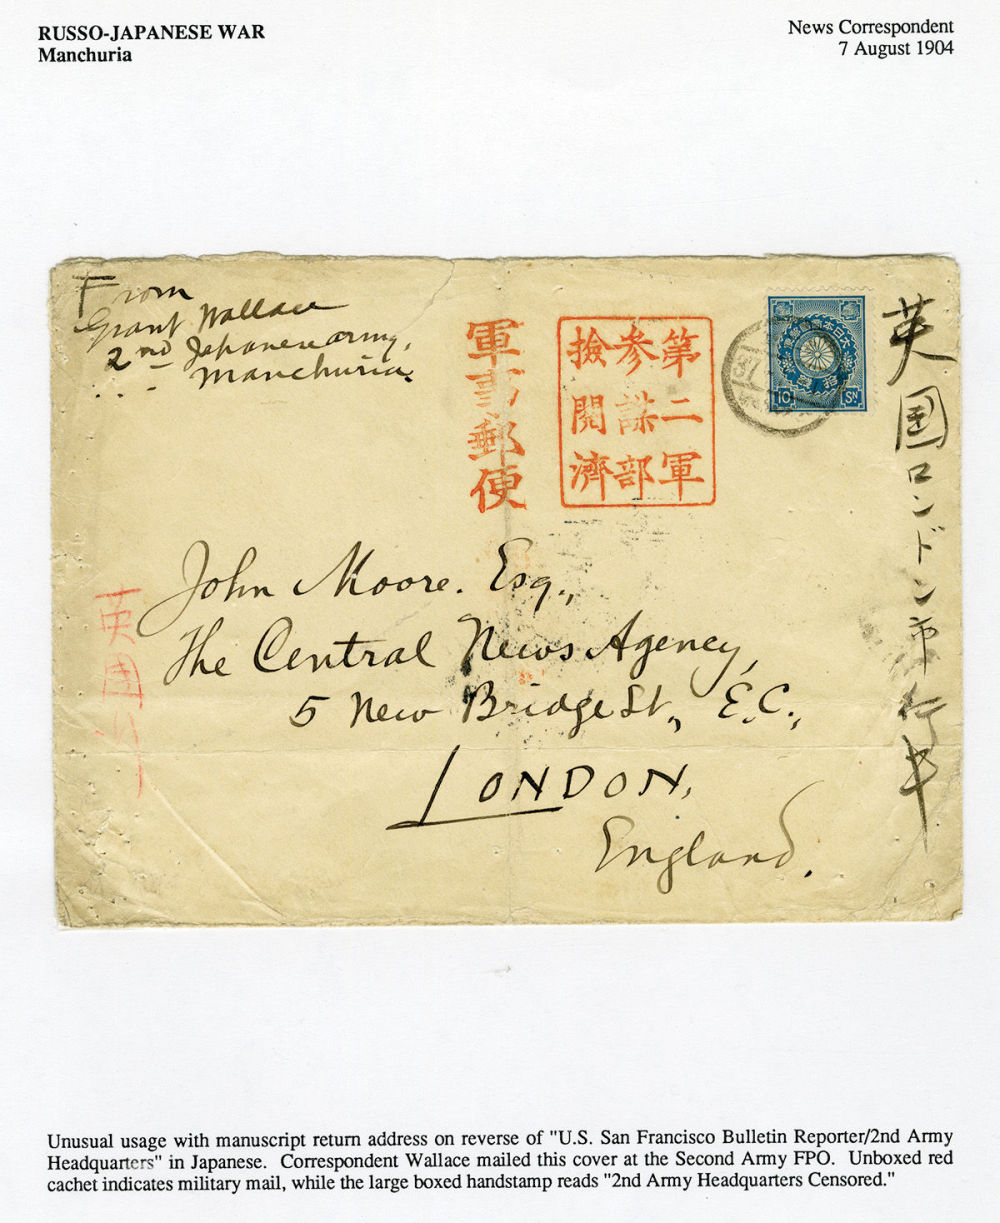 RUSSO-JAPANESE WAR
Manchuria
News Correspondent
7 August 1904
From
Grant Wallace
2nd Japanese army,
Manchuria.
軍事郵便
第二軍
参謀部
撿閲濟
大日本帝國郵便
10 SN
37
英國ロンドン市行
英國行
John Moore. Esq.,
The Central News Agency,
5 New Bridge St., E.C.,
LONDON,
England.
Unusual usage with manuscript return address on reverse of "U.S. San Francisco Bulletin Reporter/2nd Army
Headquarters" in Japanese. Correspondent Wallace mailed this cover at the Second Army FPO. Unboxed red
cachet indicates military mail, while the large boxed handstamp reads "2nd Army Headquarters Censored."